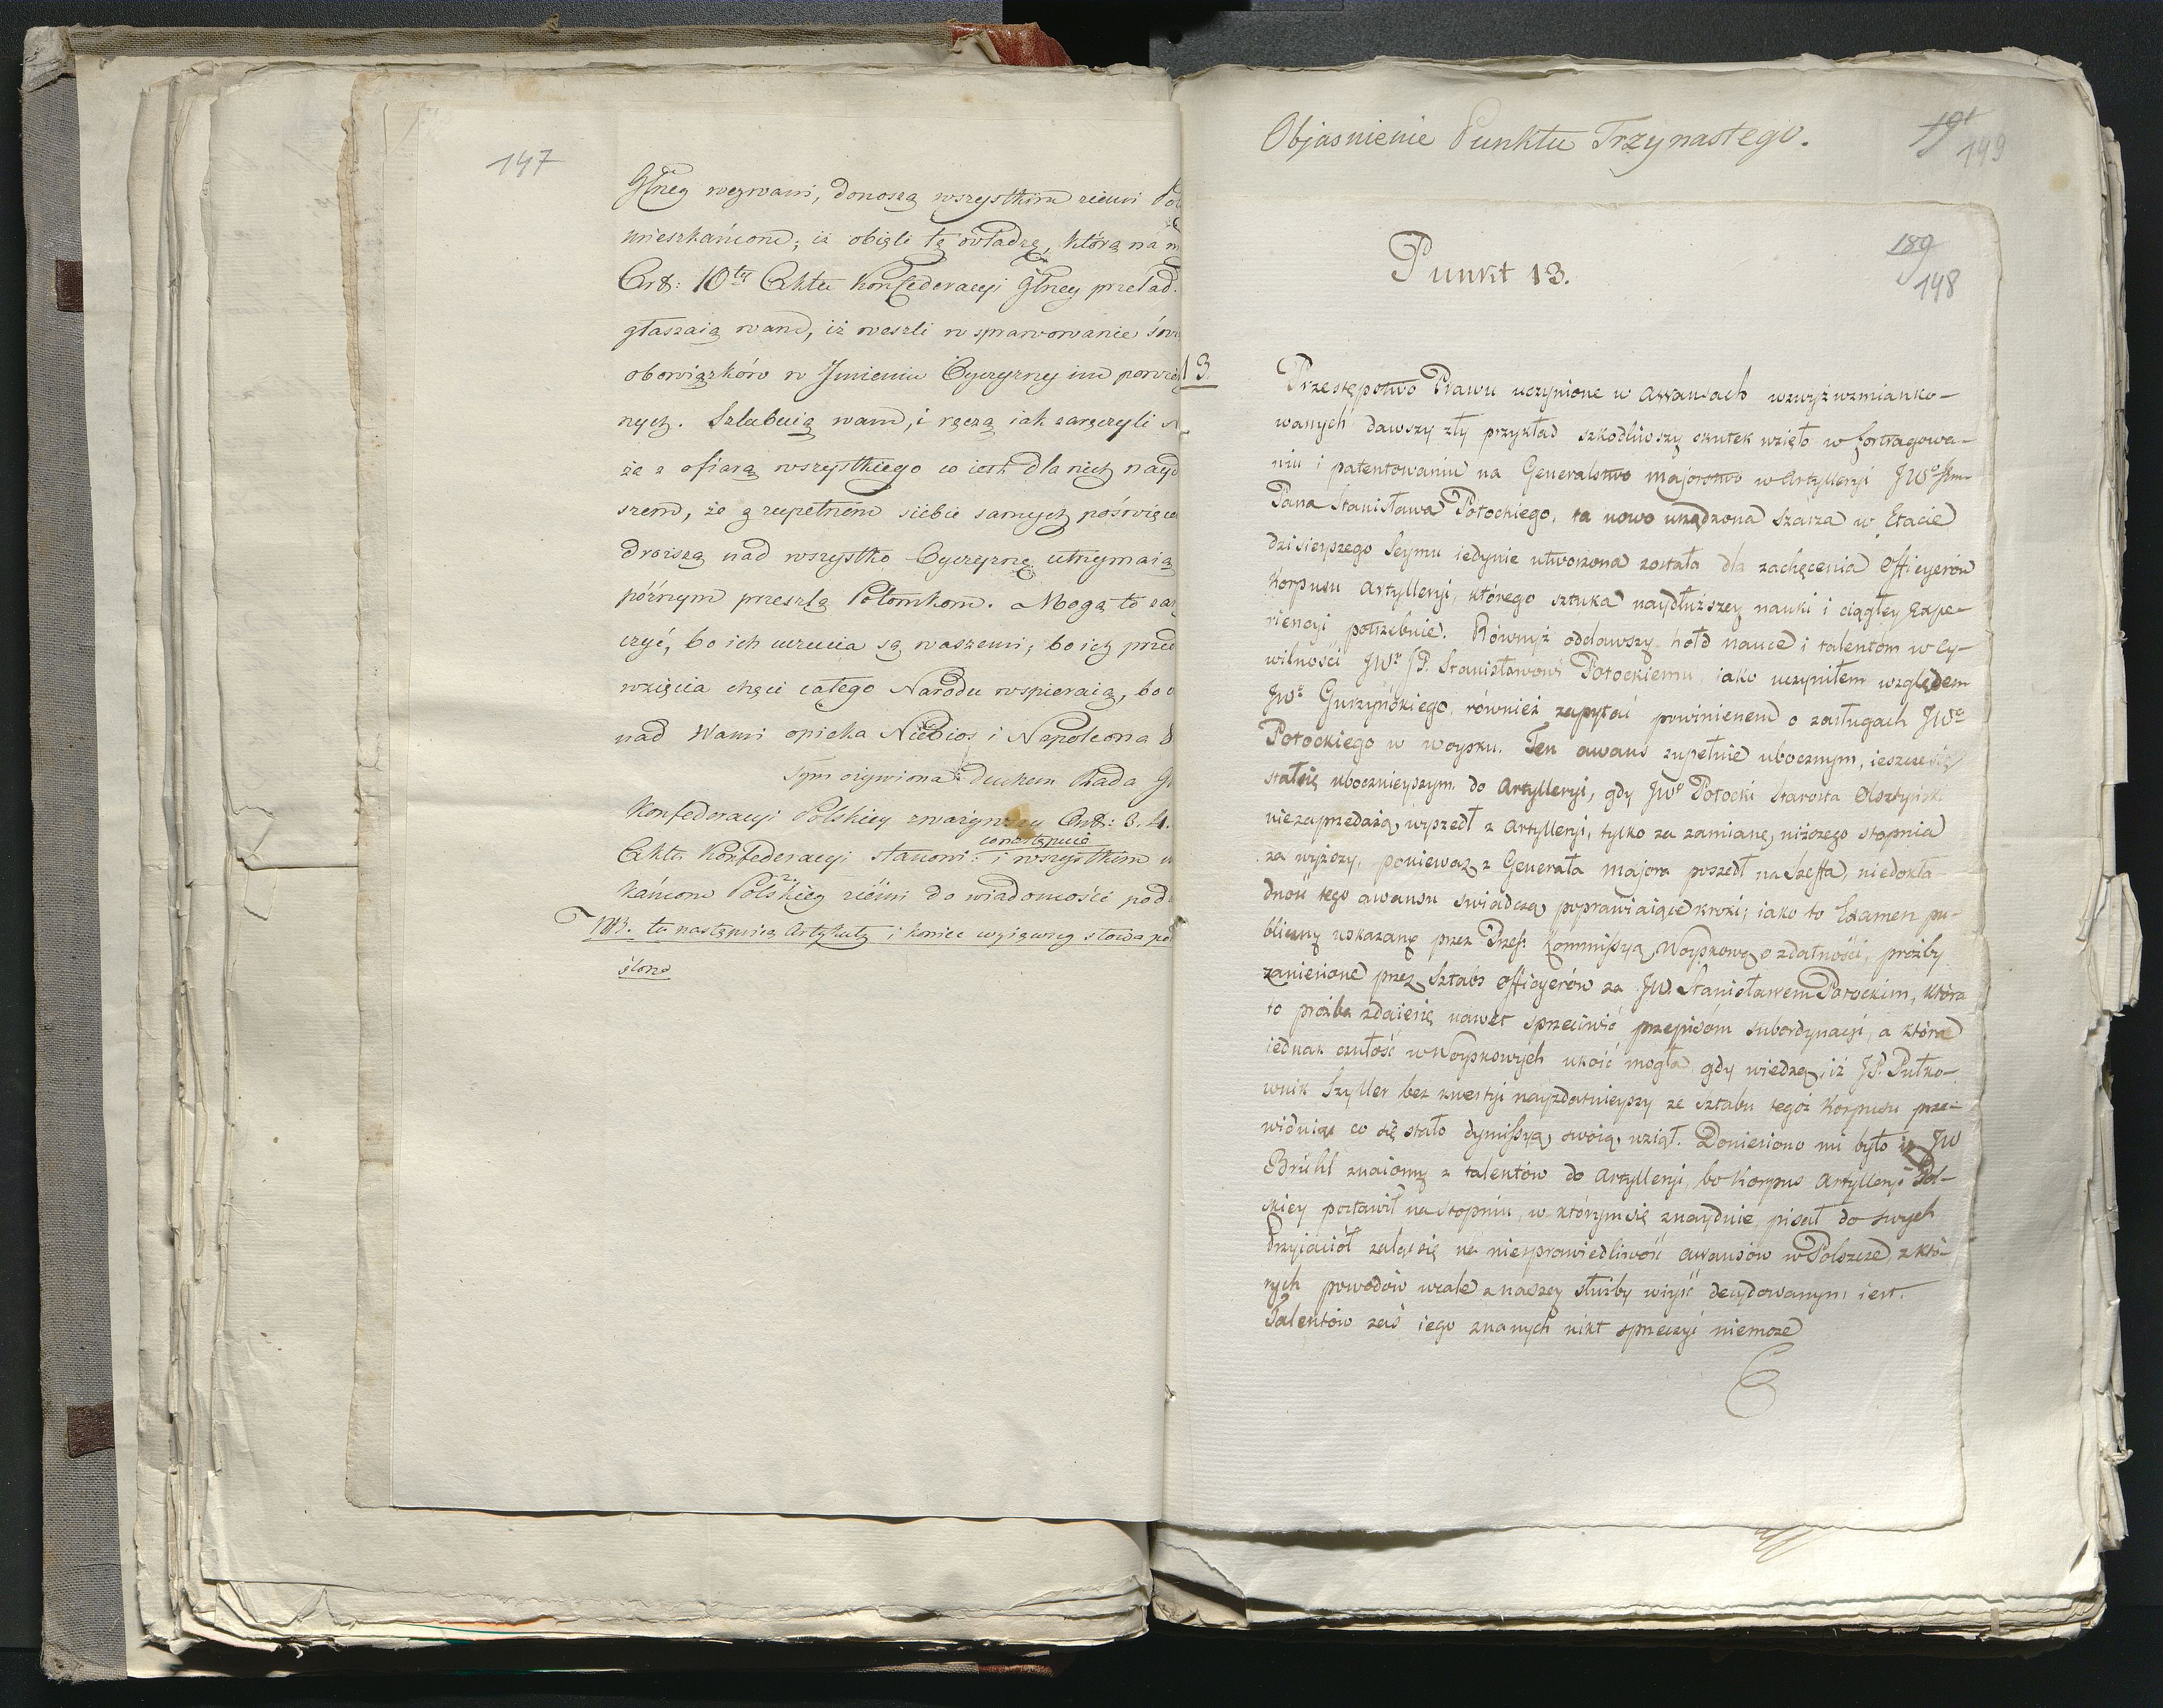 147
Głney wezwani, donoszą wszystkim ziemi Pol
mieszkańcom; iż obięli tę władzę, którą na m
Art: 10ty Aktu Konfederacyi Głney przelad.
głaszaią wam, iż weszli w sprawowanie św
obowiązków w Jmieniu Oyczyzny im powie
nych. Szlubuią wam, i ręczą iak zaręczyli
że z ofiarą wszystkiego co iest dla nich nayd
szem, że z zupełném siebie samych poświęce
droższą nad wszystko Oyczyznę utrzymaią
późnym przeszlą Potomkom. Mogą to zar
czyć, bo ich uczucia są waszemi; bo ich przed
wzięcia chęci całego Narodu wspieraią, bo
nad Wami opieka Niebios i Napoleona
Tym ożywiona duchem Rada G
Konfederacyi Polskiey zważywszy Art: 3. 4.
co następuie
Aktu Konfederacyi stanowi: i wszystkim
kańcom Polskiey ziemi do wiadomości pod
NB. tu następuią Artykuły i koniec wyiąwszy słowa po
ślone
Objasnienie Punktu Trzynastego.
191
149
189
148
Punkt 13.
13.
Przestępstwo Prawu uczynione w Awansach wzwyż wzmianko-
wanych dawszy zły przykład szkodliwszy skutek wzięło w fortragowa-
niu i patentowaniu na Generalstwo majorstwo w Artylleryi JWo Jm
Pana Stanisława Potockiego, ta nowo urządzona szarza w Etacie
dzisieyszego Seymu iedynie utworzona została dla zachęcenia Officyerów
Korpusu Artylleryi, którego sztuka naydłuższey nauki i ciągłey Expe-
riencyi potrzebuie. Równyż oddawszy hołd nauce i talentom w Cy-
wilności JWu JP. Stanisławowi Potockiemu, iako uczyniłem względem
JWo Gurzyńskiego, również zapytać powinienem o zasługach JWo
Potockiego w woysku. Ten awans zupełnie ubocznym, ieszcze się
stał się ubocznieyszym do Artylleryi, gdy JWo Potocki Starosta Olsztyńsk:
niezaprzedażą wyszedł z Artylleryi, tylko za zamianę niższego stopnia
za wyższy, ponieważ z Generała majora poszedł na Szeffa, niedokła-
dność tego awansu swiadczą poprawiaiące kroki; iako to Examen pu-
bliczny wskazany przez Przes: Kommissyą Woyskową o zdatności, prożby
zaniesione przez Sztabs Officyerów za JW. Stanisławem Potockim, która
to prożba zdaiesię nawet sprzeciwić przepisom subordynacyi, a która
iednak czułość w Woyskowych ukoić mogła, gdy wiedzą, iż JP. Pułko-
wnik Szyller bez kwestyi nayzdatnieyszy ze sztabu tegoż Korpusu prze-
widuiąc co się stało dymissyą swoią wziął. Doniesiono mi było iż JW
Brühl znaiomy z talentów do Artylleryi, bo Korpus Artylleryi Pol-
skiey postawił na stopniu, w którym się znayduie, pisał do swych
Przyiaciół żaląc się na niesprawiedliwość awansów w Polszcze, z któ-
rych powodów wcale z naszey służby wyiść decydowanym iest.
Talentów zaś iego znanych nikt sprzeczyć niemoże